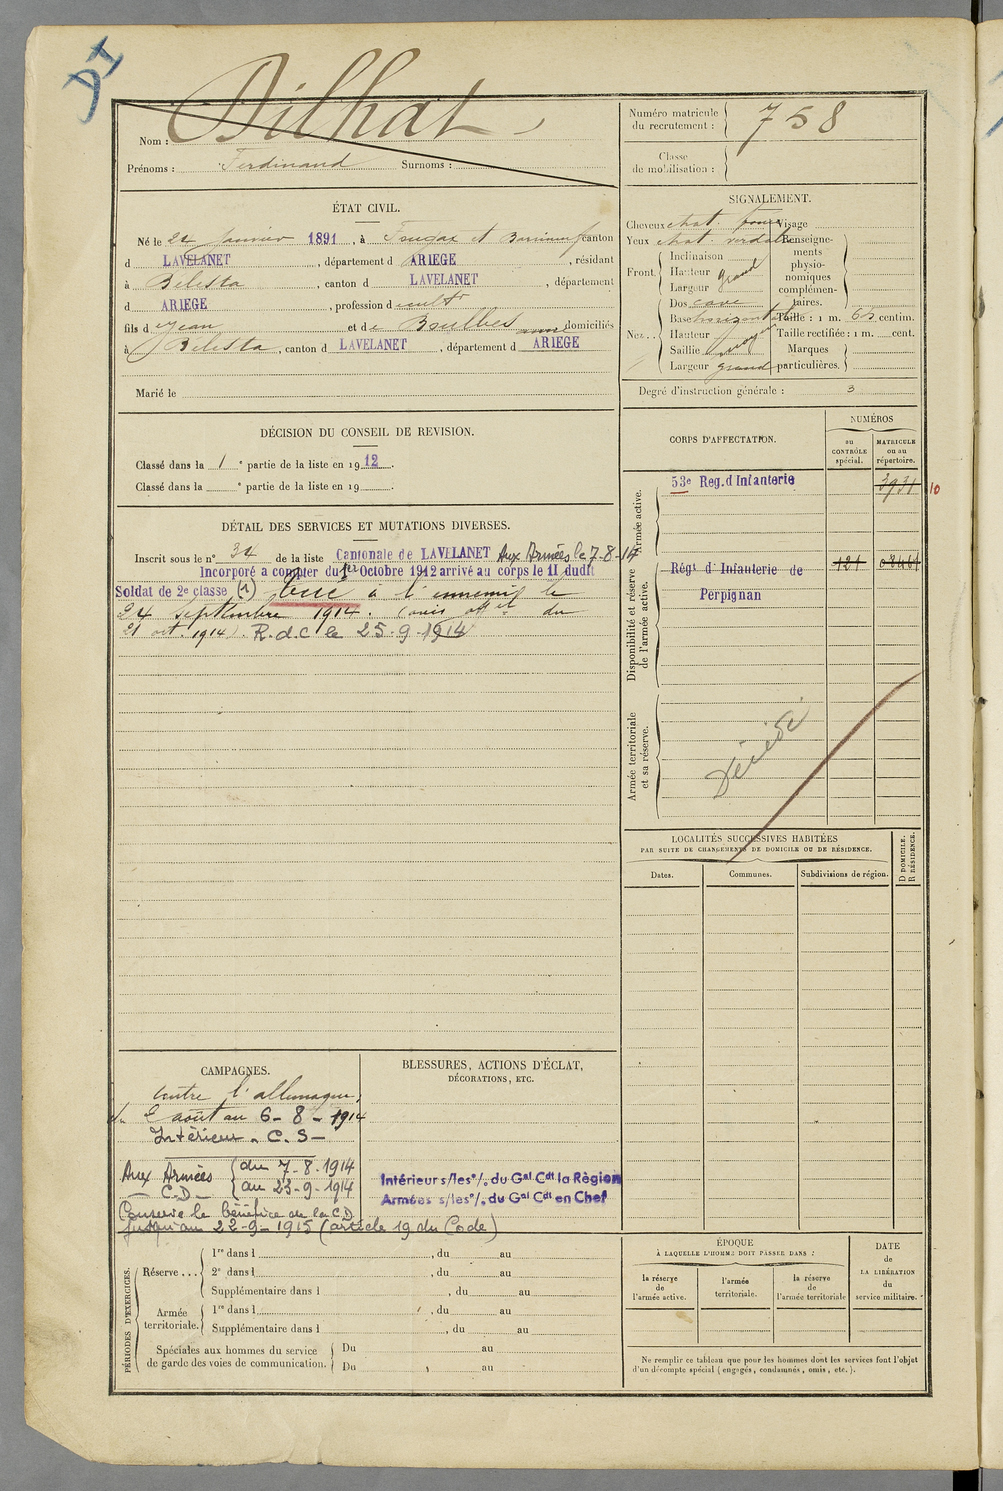 Dilhat
Nom :
Prénoms : Ferdinand Surnoms :
Numéro matricule du recrutement : 758
Classe de mobilisation :
ÉTAT CIVIL.
Né le 24 Janvier 1891, à Fougax et Barrineuf canton
d LAVELANET, département d ARIEGE, résidant
à Bélesta, canton d LAVELANET, département
d ARIEGE, profession d cult.r
fils d Jean et de Boulbes domiciliés
à Bélesta, canton d LAVELANET, département d ARIEGE
Marié le
SIGNALEMENT.
Cheveux chat. foncé Visage
Yeux chat. verdâtre
Renseignements physionomiques complémentaires.
Front. Inclinaison
Hauteur grand
Largeur
Nez.. Dos cave
Base horizontal
Hauteur
Saillie moyen
Largeur grand
Taille : 1 m. 63 centim.
Taille rectifiée : 1 m. cent.
Marques particulières.
Degré d'instruction générale : 3
DÉCISION DU CONSEIL DE REVISION.
Classé dans la 1 e partie de la liste en 1912.
Classé dans la e partie de la liste en 19 .
DÉTAIL DES SERVICES ET MUTATIONS DIVERSES.
Inscrit sous le n° 34 de la liste Cantonale de LAVELANET Aux Armées le 7-8-14
Incorporé a compter du 1er Octobre 1912 arrivé au corps le 11 dudit
Soldat de 2e classe (1) tué à l'ennemi le
24 septembre 1914. (avis off el du
21 oct. 1914). R.d.C le 25-9-1914
CORPS D'AFFECTATION.
NUMÉROS
au CONTRÔLE spécial.
MATRICULE ou au répertoire.
Armée active.
53e Reg. d Infanterie 3931 10
Disponibilité et réserve de l'armée active.
Régt d'Infanterie de 121
Perpignan
Armée territoriale et sa réserve.
Décédé
LOCALITÉS SUCCESSIVES HABITÉES
PAR SUITE DE CHANGEMENTS DE DOMICILE OU DE RÉSIDENCE.
Dates.
Communes.
Subdivisions de région.
D DOMICILE.
R RÉSIDENCE.
CAMPAGNES.
Contre l'allemagne,
du 2 août au 6-8-1914
Intérieur C.S-
Aux Armées du 7-8-1914
C.D- au 23-9-1914
Conserve le bénéfice de la C.D
jusqu'au 22-9-1915 (article 19 du Code)
BLESSURES, ACTIONS D'ÉCLAT,
DÉCORATIONS, ETC.
Intérieur s/les °/. du Gal Cdt la Région
Armées s/les °/. du Gal Cdt en Chef
PÉRIODES D'EXERCICES.
Réserve ...
1re dans l , du au
2e dans l , du au
Supplémentaire dans l , du au
Armée territoriale.
1re dans l , du au
Supplémentaire dans l , du au
Spéciales aux hommes du service
de garde des voies de communication.
Du au
Du au
ÉPOQUE
À LAQUELLE L'HOMME DOIT PASSER DANS :
la réserve de l'armée active.
l'armée territoriale.
la réserve de l'armée territoriale
DATE de LA LIBÉRATION du service militaire.
Ne remplir ce tableau que pour les hommes dont les services font l'objet
d'un décompte spécial (engagés, condamnés, omis, etc.).